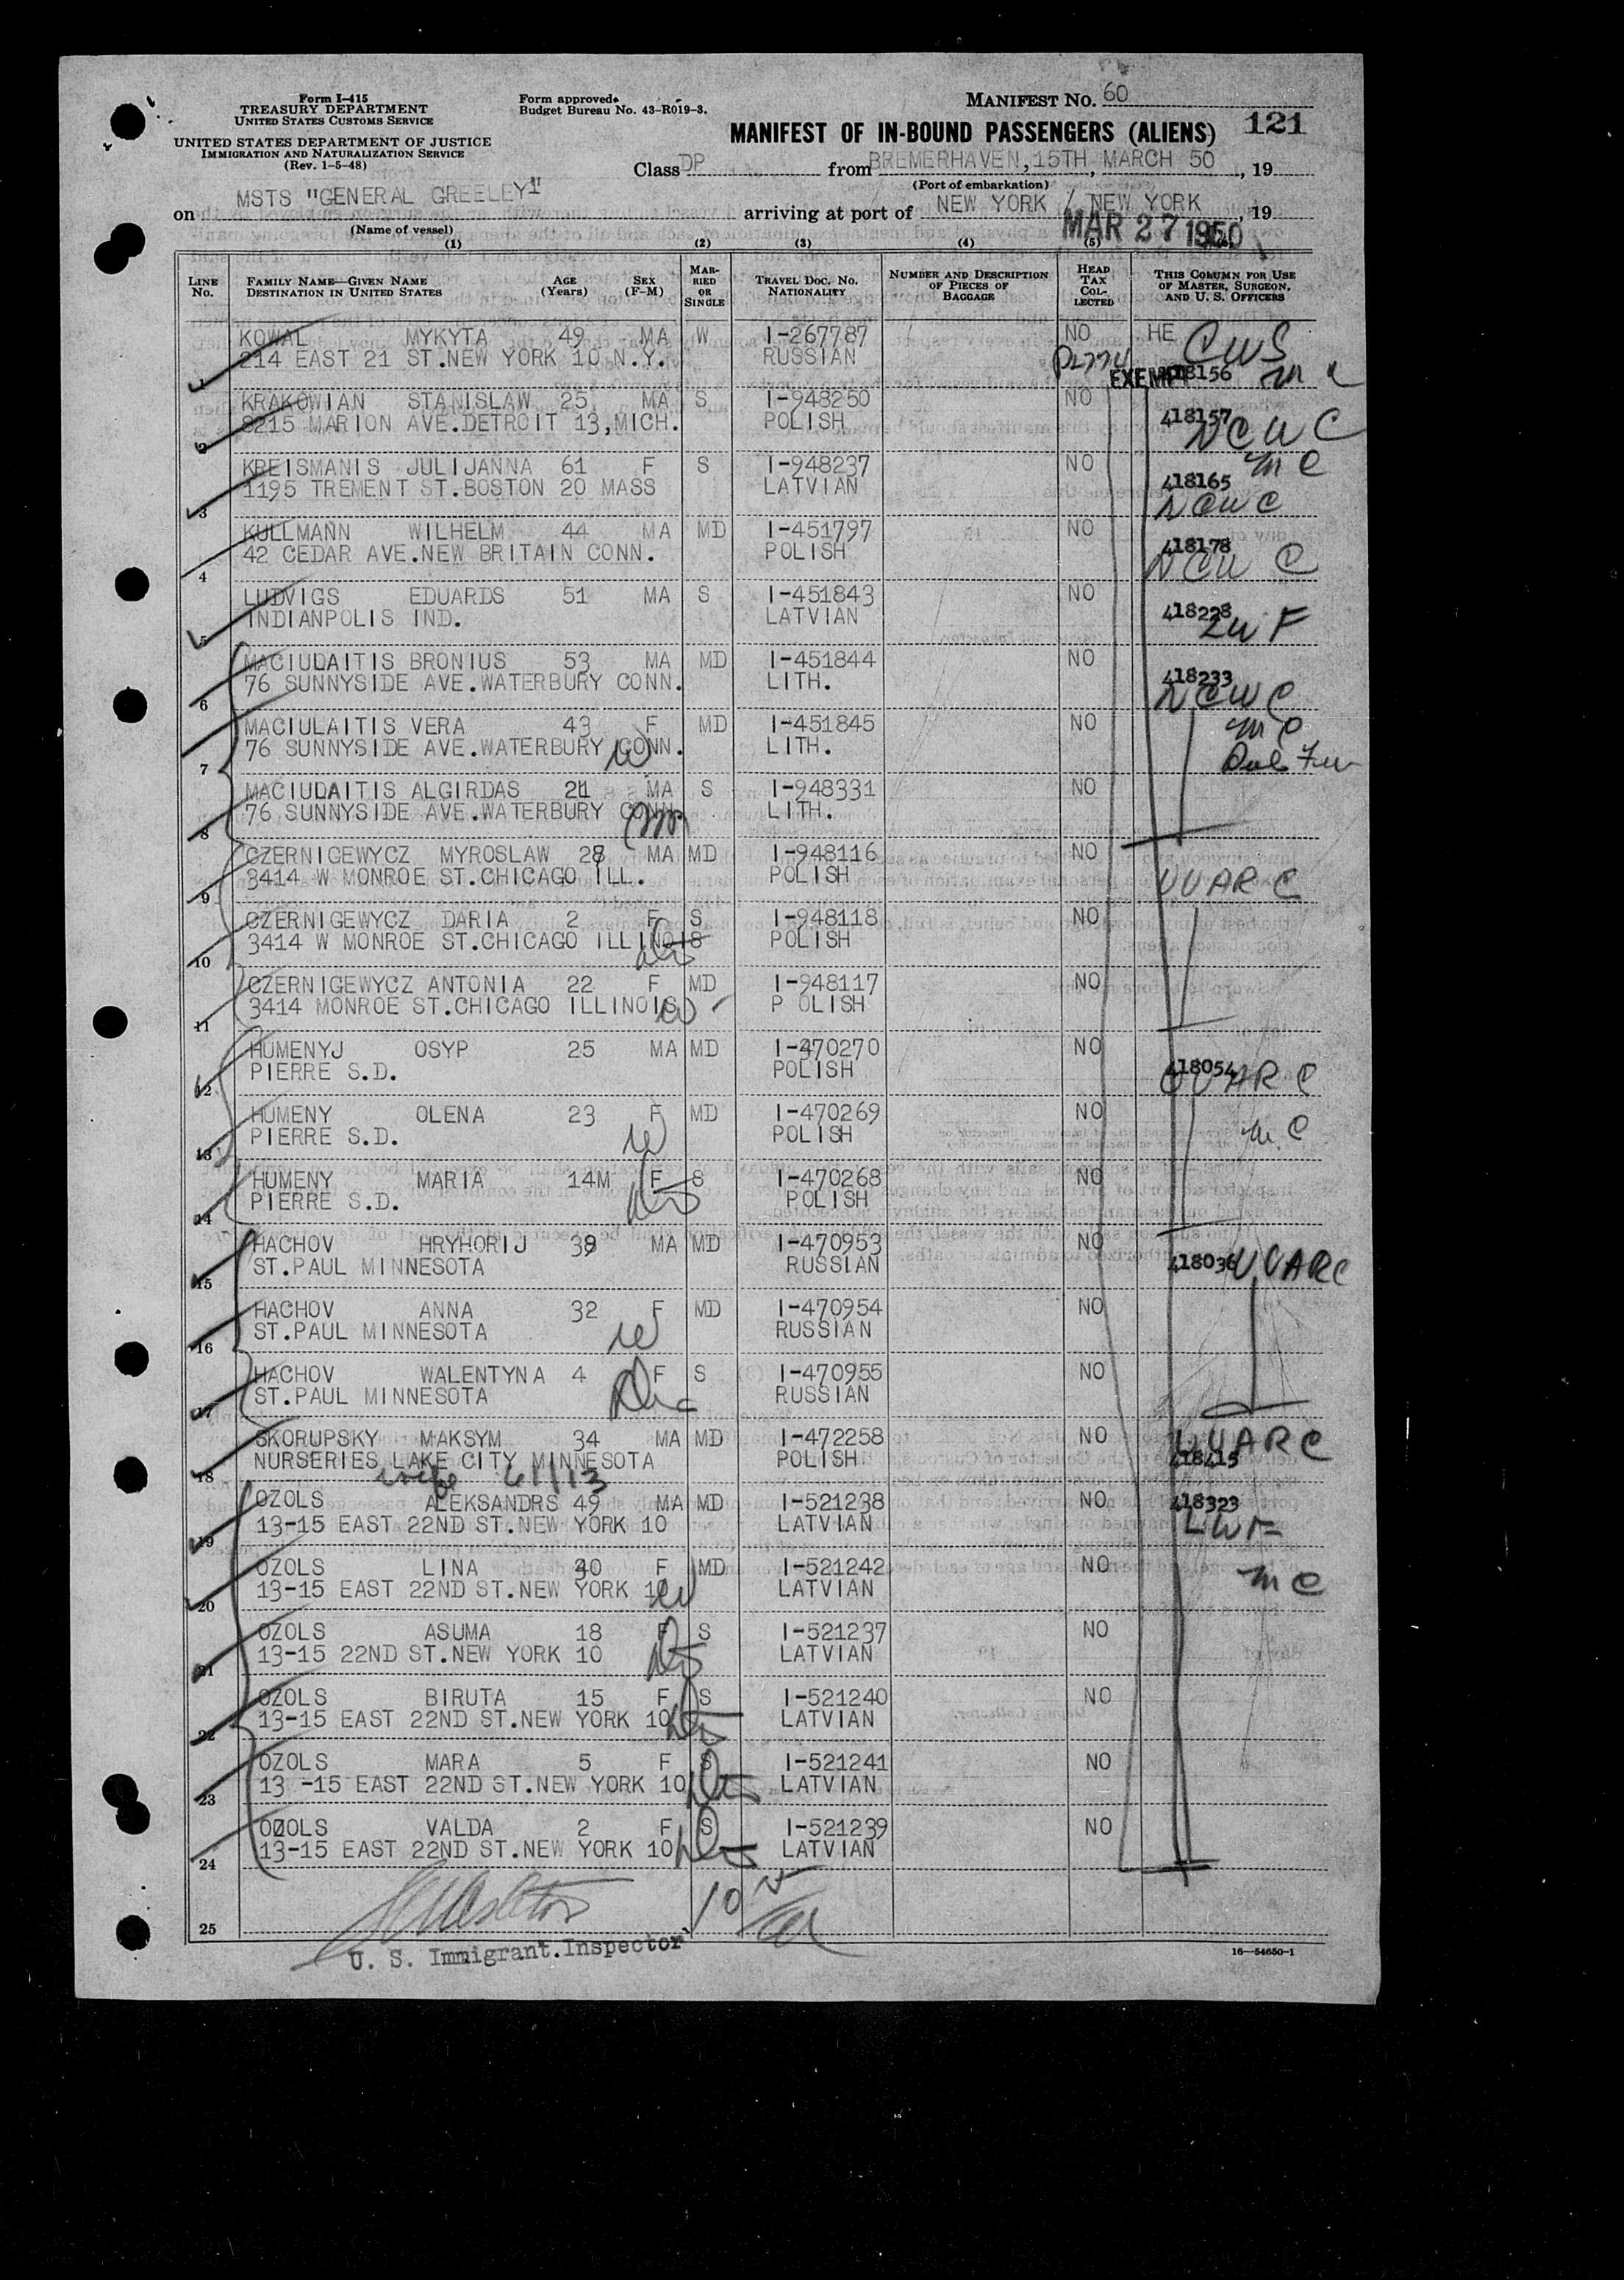 Form I-415
TREASURY DEPARTMENT
UNITED STATES CUSTOMS SERVICE
UNITED STATES DEPARTMENT OF JUSTICE
IMMIGRATION AND NATURALIZATION SERVICE
(Rev. 1-5-48)
Form approved.
Budget Bureau No. 43-R019-3.
MANIFEST NO. 60
MANIFEST OF IN-BOUND PASSENGERS (ALIENS) 121
Class DP from BREMERHAVEN, 15TH MARCH 50, 19
(Port of embarkation)
on MSTS "GENERAL GREELEY" arriving at port of NEW YORK / NEW YORK, 19
(Name of vessel)
MAR 27 1950
(1) (2) (3) (4) (5)
LINE No. FAMILY NAME—GIVEN NAME DESTINATION IN UNITED STATES AGE (Years) SEX (F-M) MARRIED OR SINGLE TRAVEL DOC. NO. NATIONALITY NUMBER AND DESCRIPTION OF PIECES OF BAGGAGE HEAD TAX COLLECTED THIS COLUMN FOR USE OF MASTER, SURGEON, AND U. S. OFFICERS
KOWAL MYKYTA 49 MA W I-267787 NO HE CWS
1 214 EAST 21 ST.NEW YORK 10 N.Y. RUSSIAN EXEMPT 418156
KRAKOWIAN STANISLAW 25 MA S I-948250 NO
2 8215 MARION AVE.DETROIT 13,MICH. POLISH 418157 NCWC
KREISMANIS JULIJANNA 61 F S I-948237 NO MC
3 1195 TREMENT ST.BOSTON 20 MASS LATVIAN 418165 NCWC
KULLMANN WILHELM 44 MA MD I-451797 NO
4 42 CEDAR AVE.NEW BRITAIN CONN. POLISH 418178 NCWC
LUDVIGS EDUARDS 51 MA S I-451843 NO
5 INDIANPOLIS IND. LATVIAN 418228 LWF
MACIULAITIS BRONIUS 53 MA MD I-451844 NO
6 76 SUNNYSIDE AVE.WATERBURY CONN. LITH. 418233 NCWC
MACIULAITIS VERA 43 F MD I-451845 NO MC
7 76 SUNNYSIDE AVE.WATERBURY CONN. W LITH.
MACIULAITIS ALGIRDAS 21 MA S I-948331 NO
8 76 SUNNYSIDE AVE.WATERBURY CONN. LITH.
CZERNIGEWYCZ MYROSLAW 28 MA MD I-948116 NO
9 3414 W MONROE ST.CHICAGO ILL. POLISH UUARC
CZERNIGEWYCZ DARIA 2 F S I-948118 NO
10 3414 W MONROE ST.CHICAGO ILLINOIS POLISH
CZERNIGEWYCZ ANTONIA 22 F MD I-948117 NO
11 3414 MONROE ST.CHICAGO ILLINOIS W P OLISH
HUMENYJ OSYP 25 MA MD I-470270 NO
12 PIERRE S.D. POLISH 418054 UUARC
HUMENY OLENA 23 F MD I-470269 NO
13 PIERRE S.D. W POLISH MC
HUMENY MARIA 14M F S I-470268 NO
14 PIERRE S.D. POLISH
HACHOV HRYHORIJ 38 MA MD I-470953 NO
15 ST.PAUL MINNESOTA RUSSIAN 418036 UUARC
HACHOV ANNA 32 F MD I-470954 NO
16 ST.PAUL MINNESOTA W RUSSIAN
HACHOV WALENTYNA 4 F S I-470955 NO
17 ST.PAUL MINNESOTA RUSSIAN
SKORUPSKY MAKSYM 34 MA MD I-472258 NO UUARC
18 NURSERIES LAKE CITY MINNESOTA POLISH 418415
wife 61/13
OZOLS ALEKSANDRS 49 MA MD I-521238 NO 418323
19 13-15 EAST 22ND ST.NEW YORK 10 LATVIAN LWF
OZOLS LINA 40 F MD I-521242 NO
20 13-15 EAST 22ND ST.NEW YORK 10 W LATVIAN MC
OZOLS ASUMA 18 F S I-521237 NO
21 13-15 22ND ST.NEW YORK 10 LATVIAN
OZOLS BIRUTA 15 F S I-521240 NO
22 13-15 EAST 22ND ST.NEW YORK 10 LATVIAN
OZOLS MARA 5 F S I-521241 NO
23 13 -15 EAST 22ND ST.NEW YORK 10 LATVIAN
OZOLS VALDA 2 F S I-521239 NO
24 13-15 EAST 22ND ST.NEW YORK 10 LATVIAN
25
U. S. Immigrant.Inspector
16—54650-1